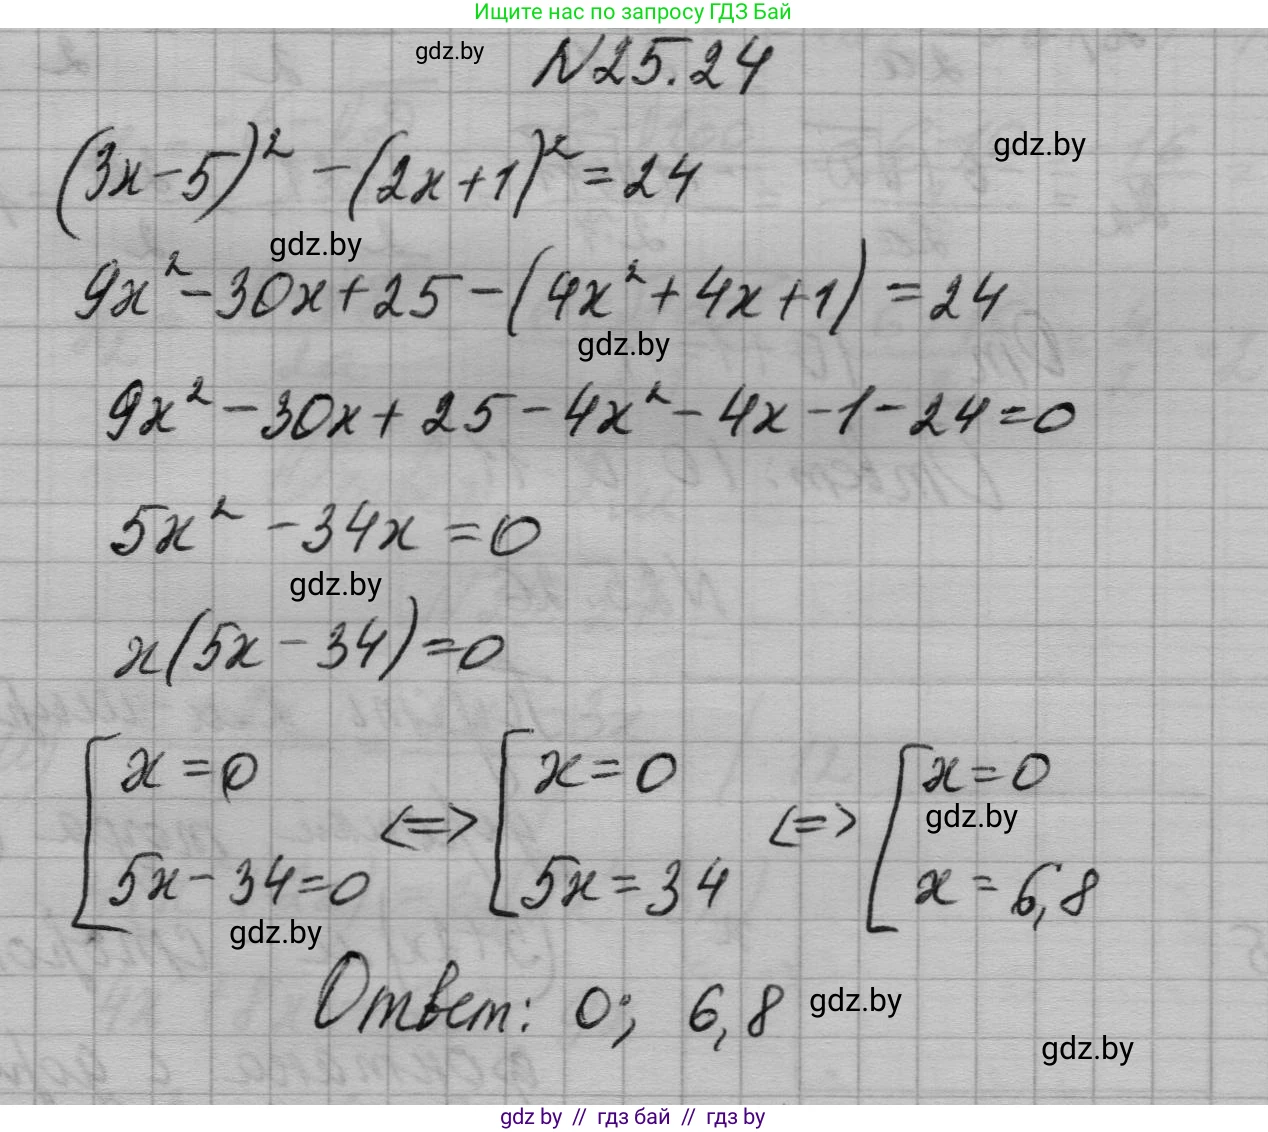 Ищите нас по запросу ГДЗ Бай
gdz.by
N25.24
(3x-5)² -(2x+1)² =24
gdz.by
gdz.by
9x²-30x+25-(4x²+4x+1)=24
gdz.by
9x²-30x+25-4x²-4x-1-24=0
5x² -34x =0
gdz.by
x(5x-34)=0
[x=0 <=> [x=0 <=> [x=0
gdz.by
5x-34=0 5x=34 x=6,8
gdz.by
Ответ: 0; 6,8
gdz.by
gdz.by
gdz by // гдз бай // гдз by